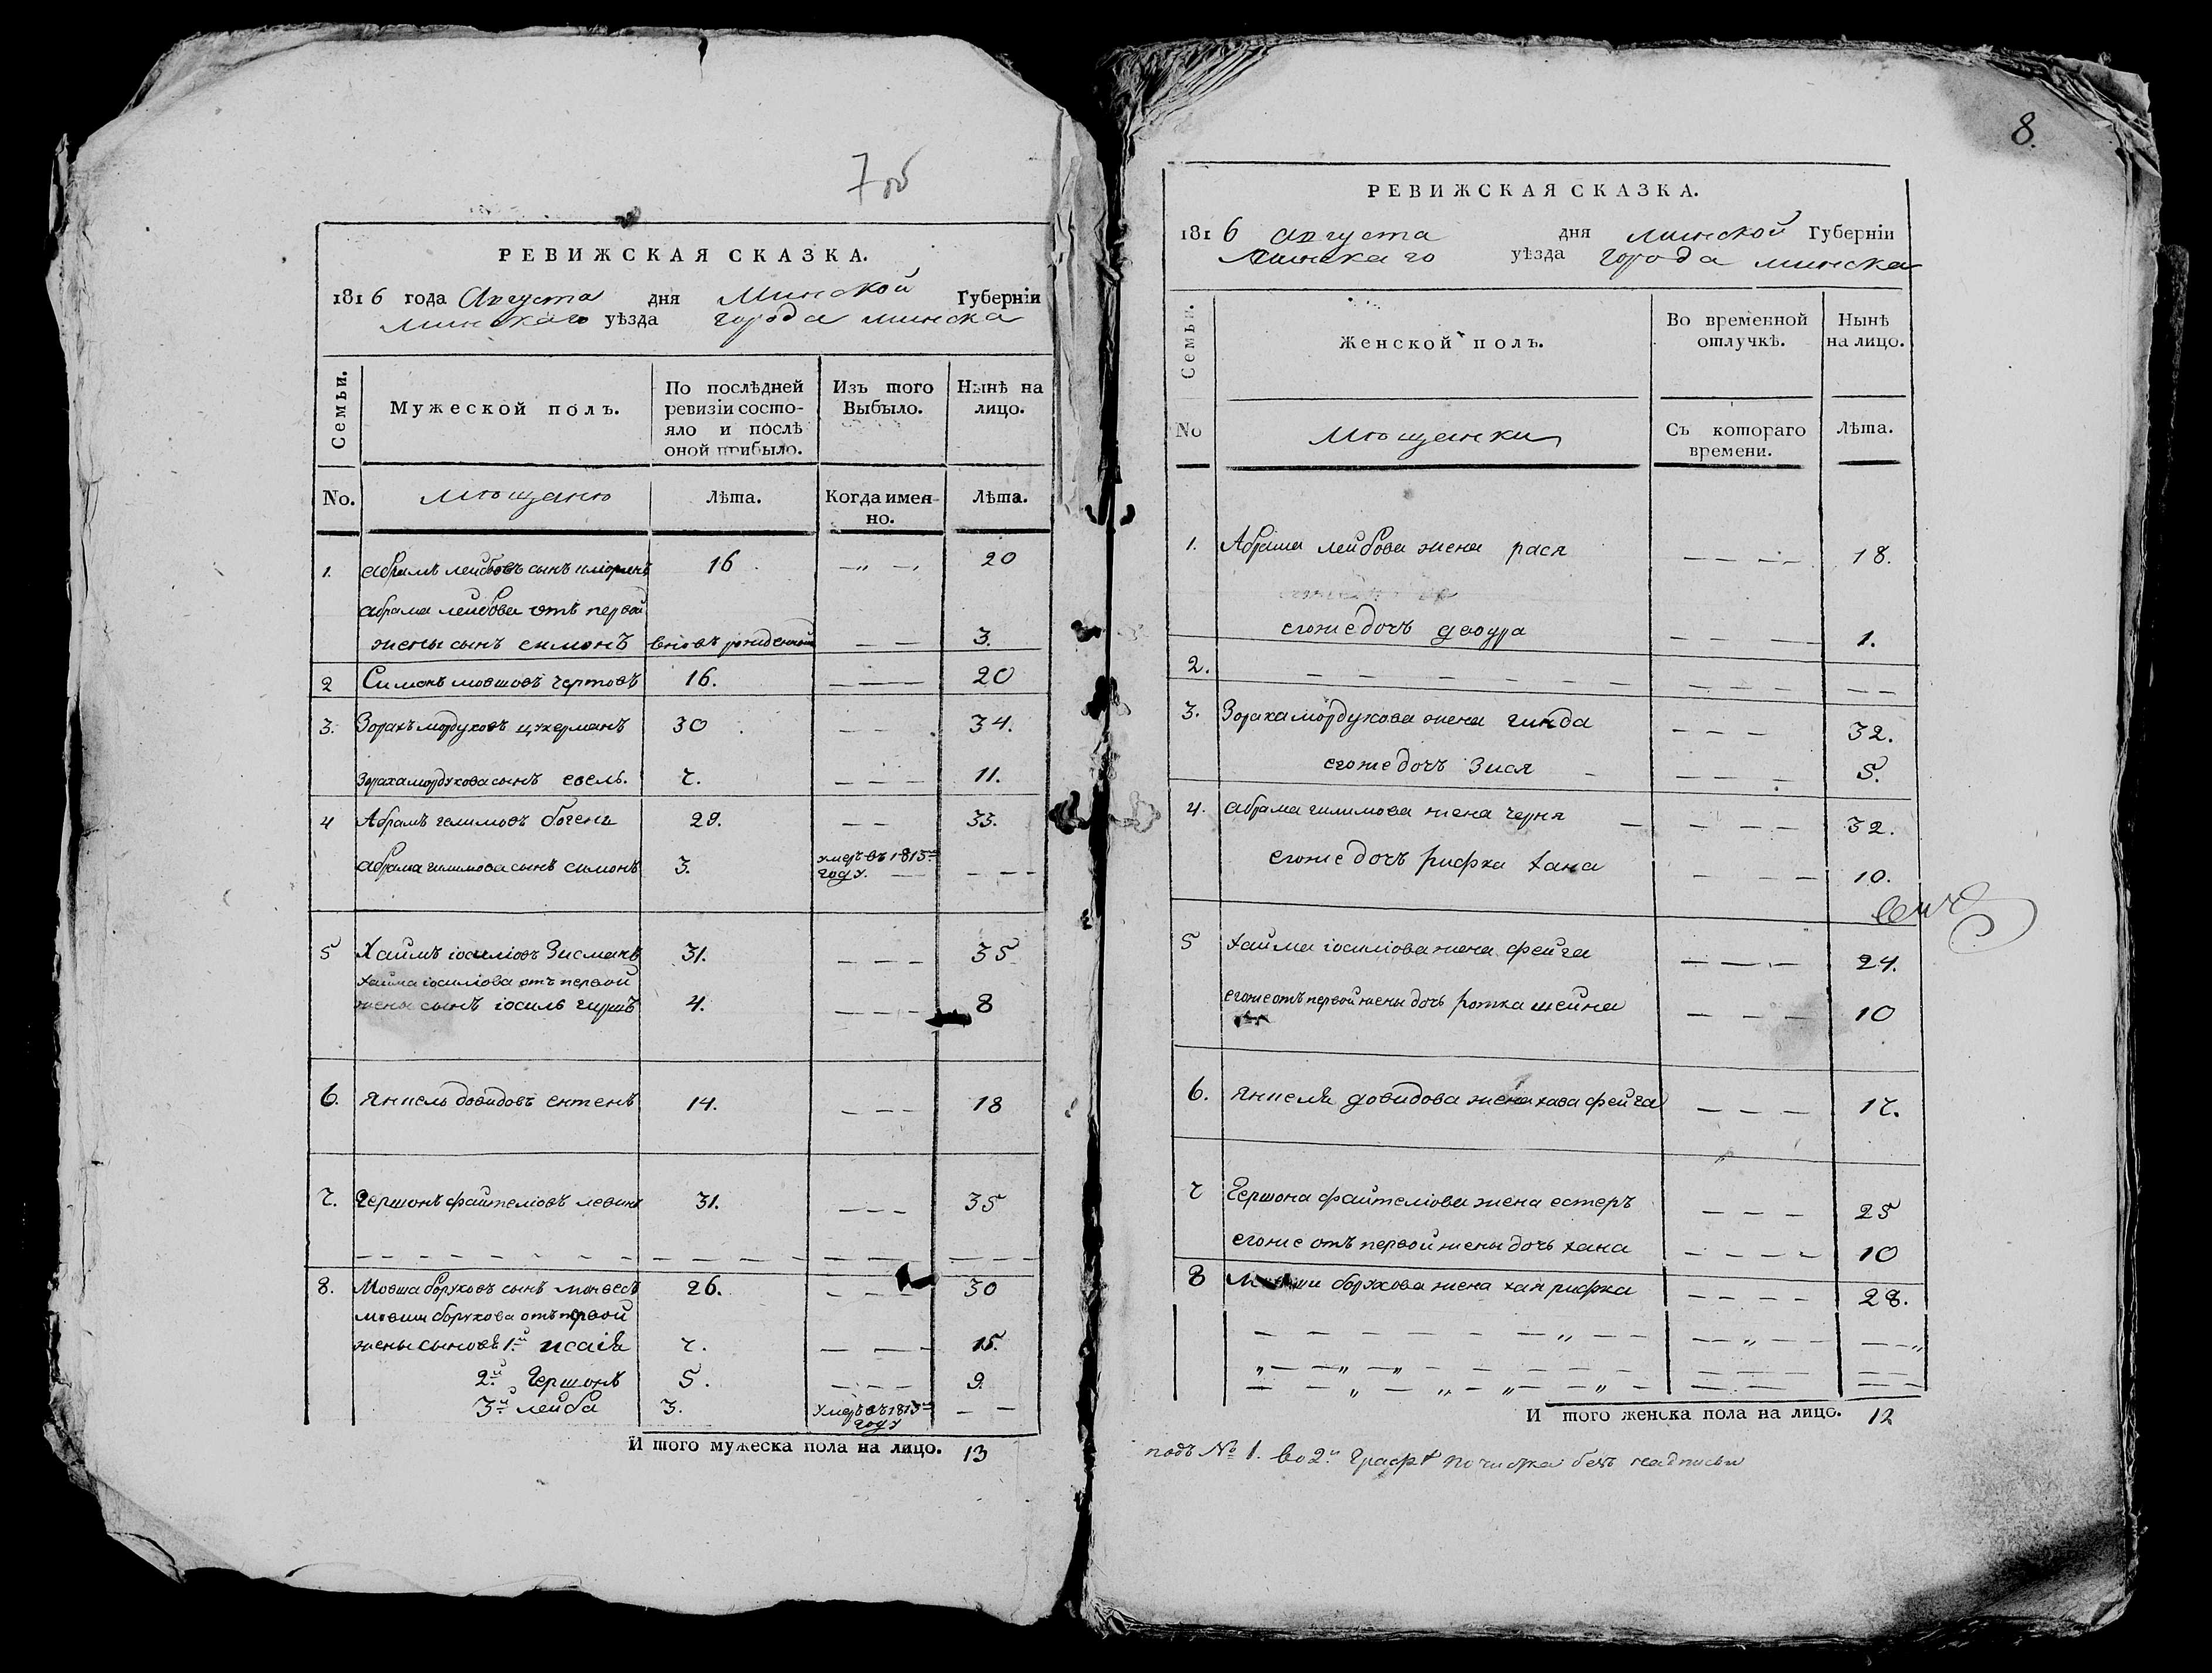 7 об
РЕВИЖСКАЯ СКАЗКА.
1816 года Августа дня Минской Губерніи
Минскаго уѣзда города Минска
Семьи. Мужеской полъ. По послѣдней ревизіи состояло и послѣ оной прибыло. Изъ того Выбыло. Нынѣ на лицо.
No. Мѣщане Лѣта. Когда именно. Лѣта.
1. Абрамъ лейбовъ сынъ 16 — „ — 20
абрама лейбова отъ первой
жены сынъ симонъ вновь рожденной — — 3.
2 Симонъ мовшовъ чертовъ 16. — — — 20
3. Зорахъ мордуховъ цукерманъ 30 — — — 34.
Зораха мордухова сынъ евель. 7. — — — 11.
4 Абрамъ гелимовъ богенъ 29. — — 33.
абрама гилимова сынъ симонъ 3. умеръ въ 1813м году. — — — —
5 Хаимъ іосиліовъ Зисманъ 31. — — — 35
хаима іосиліова отъ первой
жены сынъ іосиль гиршъ 4. — — — 8
6. Янкель довидовъ ентенъ 14. — — — 18
7. Гершонъ файтеліовъ левинъ 31. — — — 35
— — — — — — — — — — — — — — — —
8. Мовша боруховъ сынъ монвесъ 26. — — — — 30
мовши борухова отъ первой
жены сыновъ 1й исаія 7. — — — 15.
2й Гершонъ 5. — — — 9.
3й лейба 3. умеръ въ 1813м году — —
И того мужеска пола на лицо. 13
8.
РЕВИЖСКАЯ СКАЗКА.
1816 августа дня минской Губерніи
Минскаго уѣзда города минска
Семьи. Женской полъ. Во временной отлучкѣ. Нынѣ на лицо.
No Мѣщанки Съ котораго времени. Лѣта.
1. Абрама лейбова жена рася — — — — 18.
егоже дочъ двоура — — — — 1.
2. — — — — — — — — — — — — —
3. Зораха мордухова жена гинда — — — 32.
егоже дочъ Зися — — — — 5.
4. абрама гилимова жена черня — — — — — 32.
егоже дочъ рифка хана — — — 10.
5 хаима іосиліова жена фейга — — — 24.
егоже отъ первой жены дочь ротка шейна — — — 10
6. Янкеля довидова жена хава фейга — — — 17.
7 Гершона файтеліова жена естеръ — — — 25
егоже отъ первой жены дочь хана — — — — 10
8 Мовши борухова жена хая рифка — — — — 28.
— — — — — — — „ — — — — „ — — — — „
„ — — „ — „ — — — — — — — — — — — —
— — „ — „ — „ — — „ — — — — —
И того женска пола на лицо. 12
подъ № 1. во 2й Графѣ почистка безъ надписи